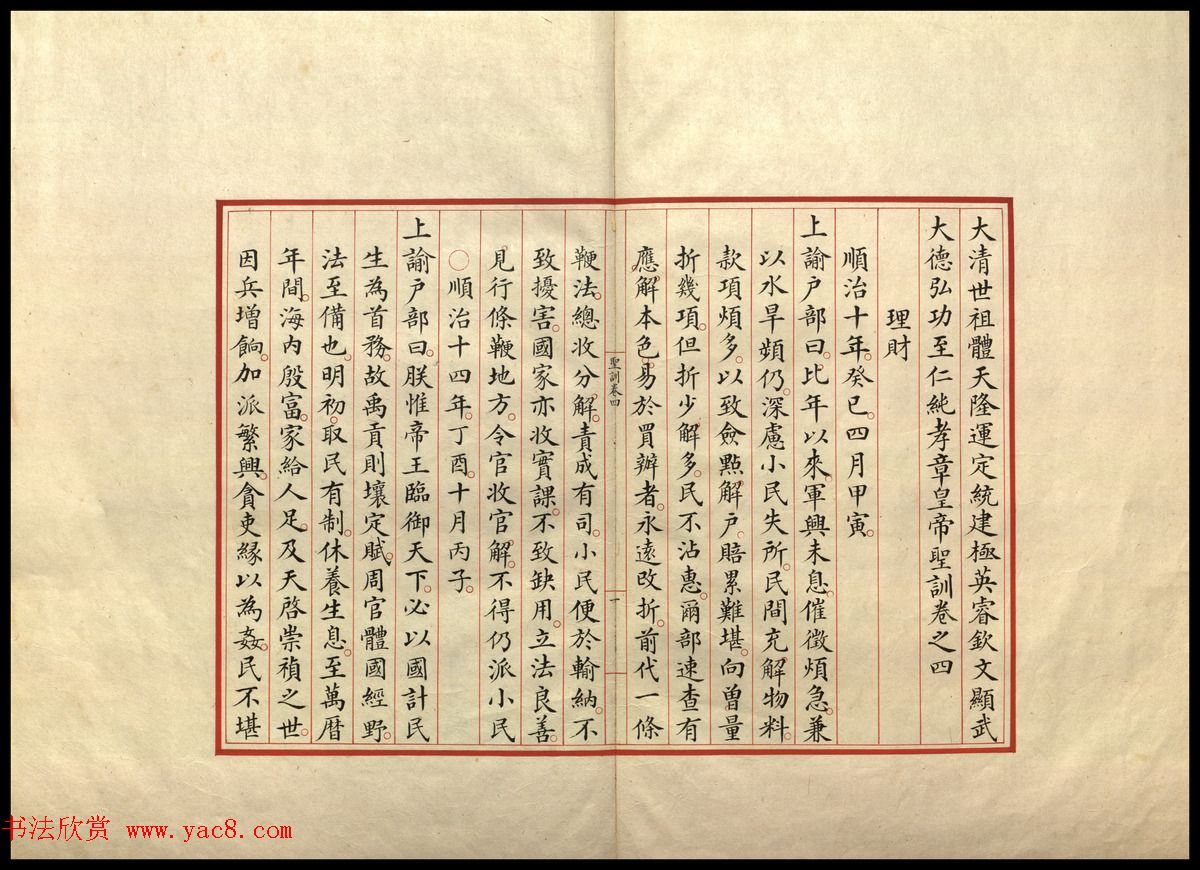 大清世祖體天隆運定統建極英睿欽文顯武
大德弘功至仁純孝章皇帝聖訓卷之四
理財
順治十年癸巳四月甲寅
上諭户部曰比年以來軍興未息催徵煩急兼
以水旱頻仍深慮小民失所民間充解物料
款項煩多以致僉點解户賠累難堪向曽量
折幾項但折少解多民不沾惠爾部速查有
應解本色易於買辦者永遠改折前代一條
鞭法總收分解責成有司小民便於輸納不
致擾害國家亦收實課不致缺用立法良善
見行條鞭地方令官收官解不得仍派小民
○順治十四年丁酉十月丙子
上諭户部曰朕惟帝王臨御天下必以國計民
生為首務故禹貢則壤定賦周官體國經野
法至備也明初取民有制休養生息至萬曆
年間海内殷富家給人足及天啓崇禎之世
因兵增餉加派繁興貪吏緣以為姦民不堪
聖訓卷四
一
书法欣赏 www.yac8.com